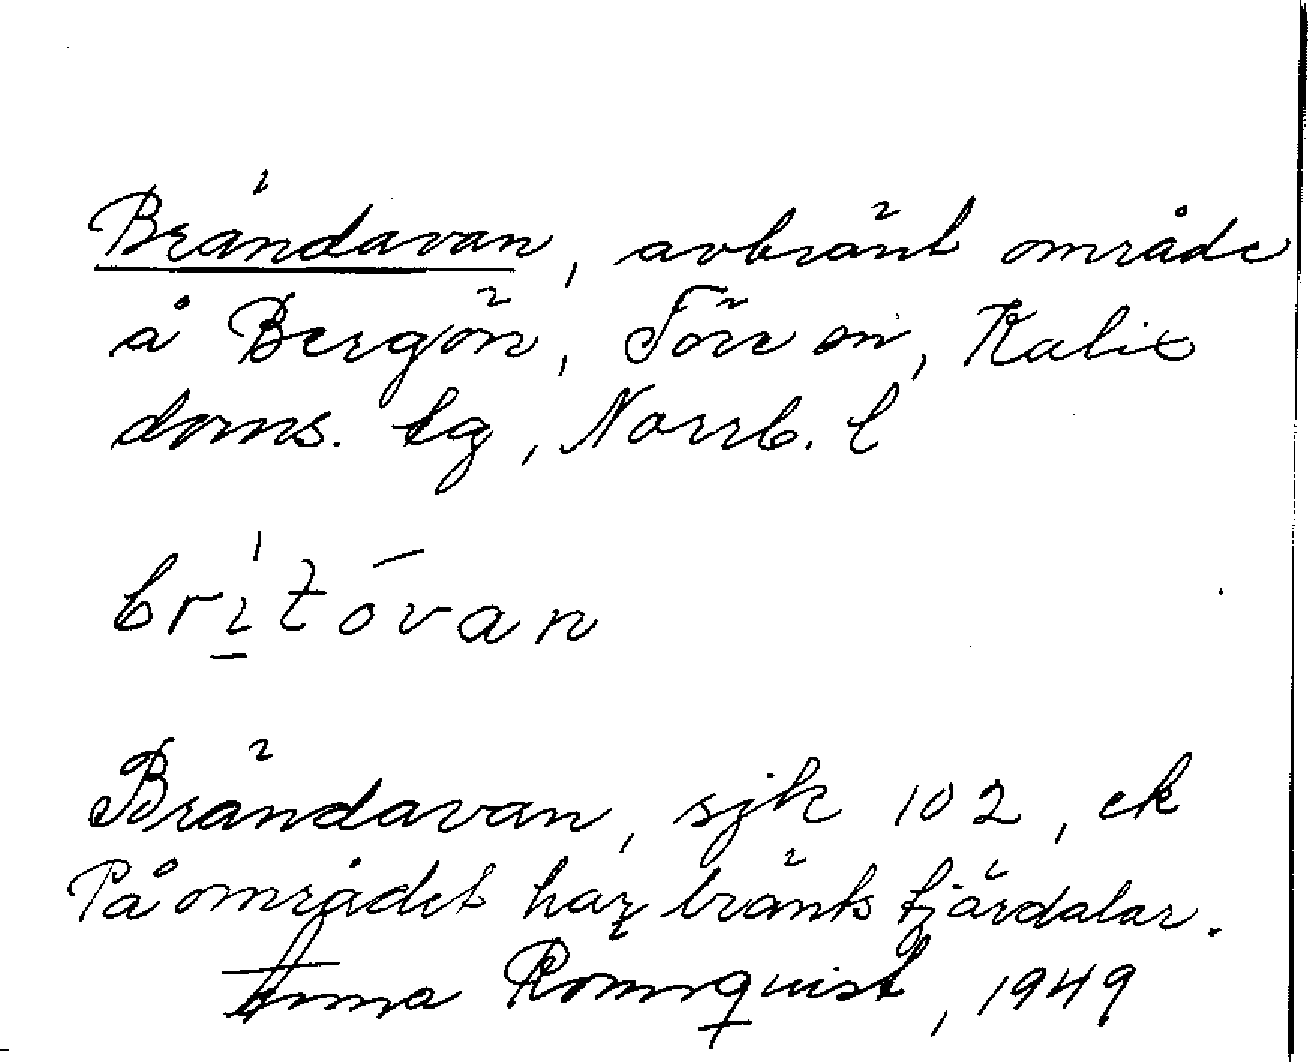 Brändavan, avbränt område
å Bergön, Töre sn, Kalix
doms. tg, Norrb. l
britóvan
Brändavan, sjk 102, ek
På området har bränts tjärdalar.
Anna Romquist, 1949